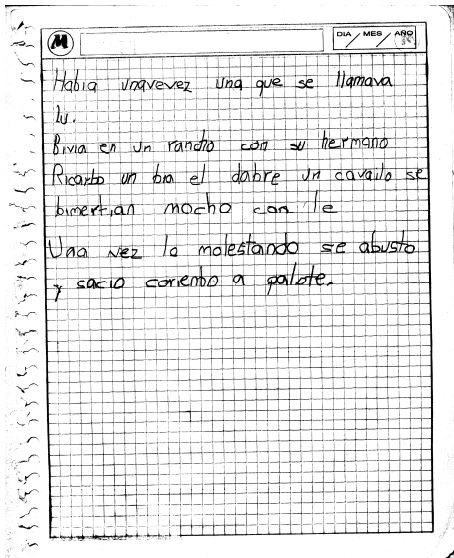 M DIA MES AÑO
Había unavevez una que se llamava
lu.
Bivia en un rancho con su hermano
Ricarbo un bia el dabre un cavallo se
bimertian mocho con le
Una vez lo molestando se abusto
y sacio coriendo a palote.